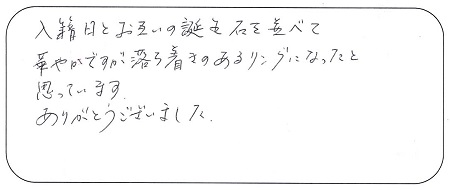 入籍日とお互いの誕生石を並べて
華やかですが落ち着きのあるリングになったと
思っています.
ありがとうございました.